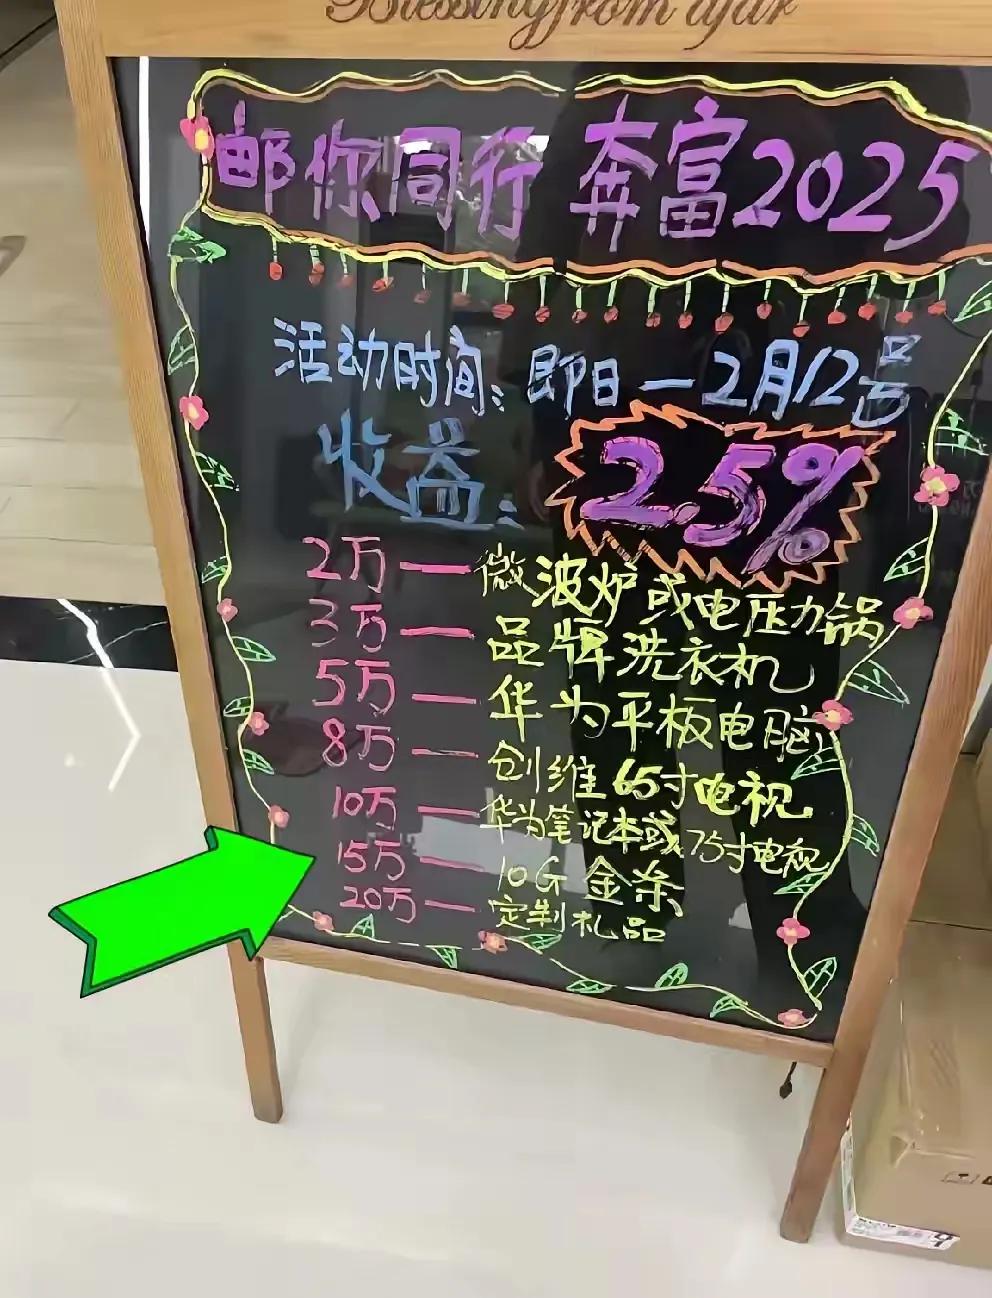 Blessingfrom afar
邮你同行 奔富2025
活动时间:即日一2月12号
收益:2.5%
2万一微波炉或电压力锅
3万一品牌洗衣机
5万一华为平板电脑
8万一创维65寸电视
10万一华为笔记本或75寸电视
15万一10G金条
20万一定制礼品